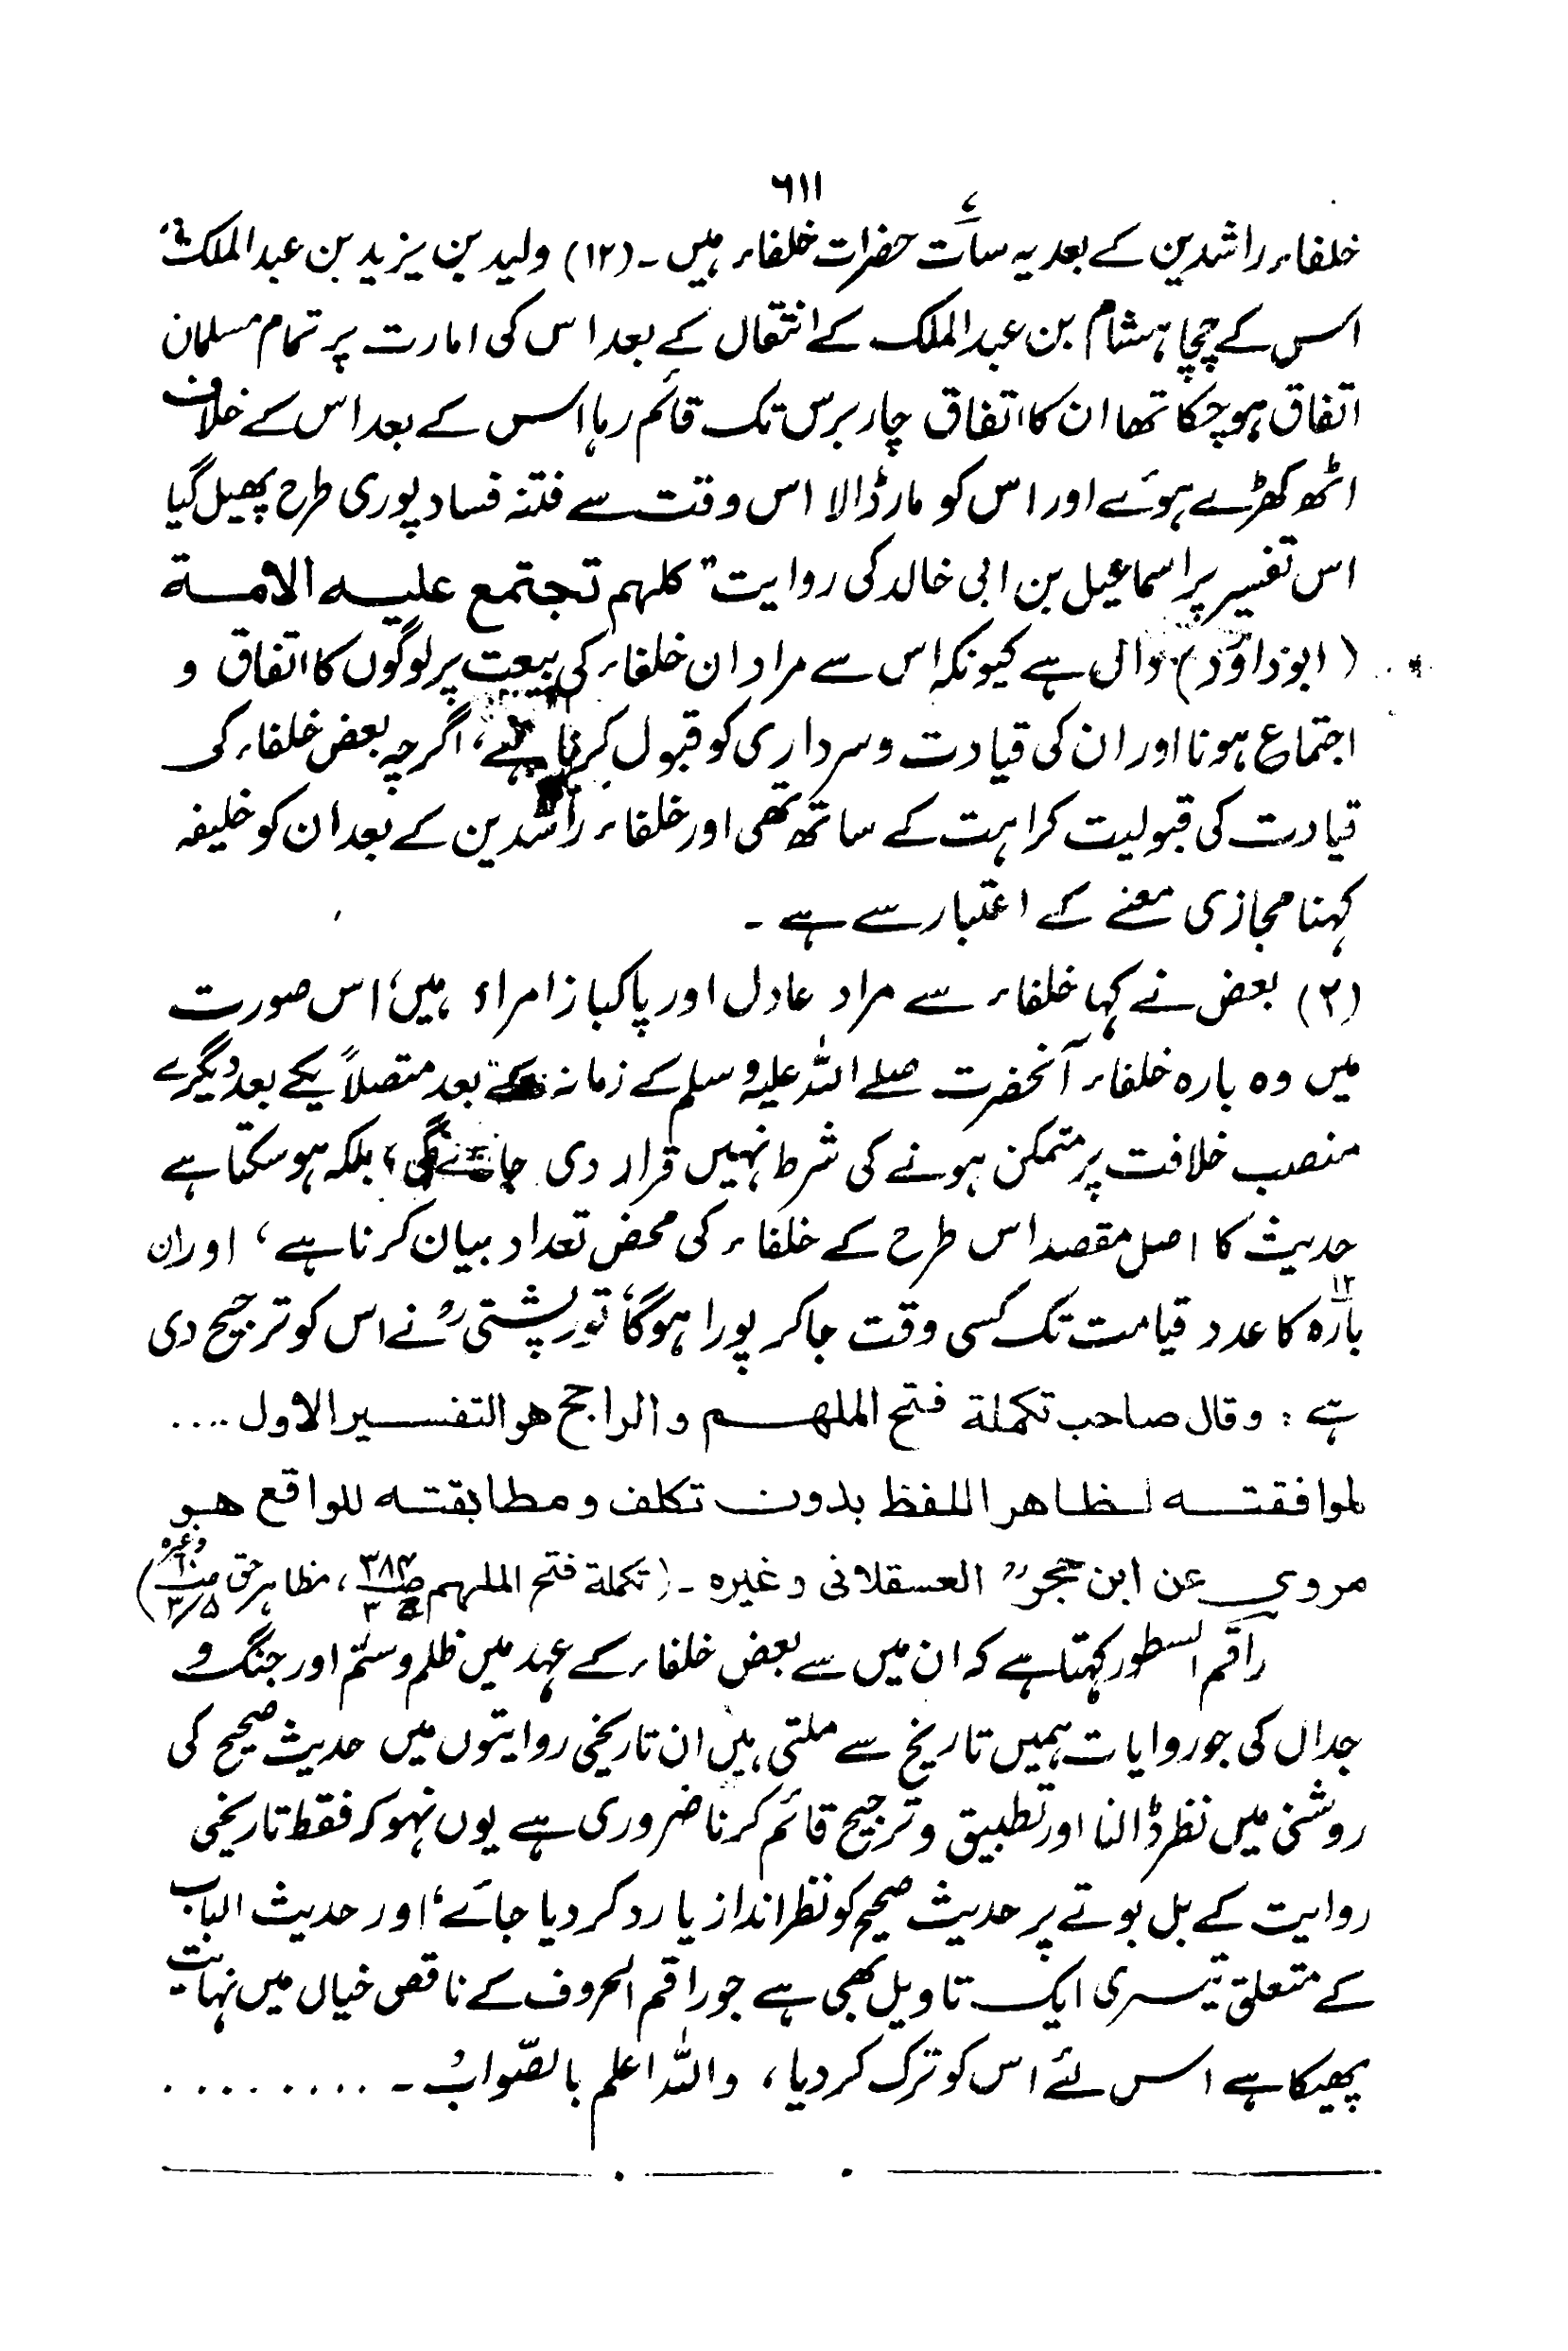 ٦١١
خلفاء راشدین کے بعد یہ سات۷ حضرات خلفاء ہیں ۔ (۱۲) ولید بن یزید بن عبد الملک،
اس کے چچا ہشام بن عبد الملک کے انتقال کے بعد اس کی امارت پر تمام مسلمان
اتفاق ہو چکا تھا ان کا اتفاق چار برس تک قائم رہا اس کے بعد اس کے خلاف
اٹھ کھڑے ہوئے اور اس کو مار ڈالا اس وقت سے فتنہ فساد پوری طرح پھیل گیا
اس تفسیر پر اسماعیل بن ابی خالد کی روایت " کلہم تجتمع علیہ الامۃ
(ابوداؤد) دال ہے کیونکہ اس سے مراد ان خلفاء کی بیعت پر لوگوں کا اتفاق و
اجتماع ہونا اور ان کی قیادت و سرداری کو قبول کرنا ہے، اگرچہ بعض خلفاء کی
قیادت کی قبولیت کراہت کے ساتھ تھی اور خلفاء راشدین کے بعد ان کو خلیفہ
کہنا مجازی معنے کے اعتبار سے ہے ۔
(۲) بعض نے کہا خلفاء سے مراد عادل اور پاکباز امراء ہیں، اس صورت
میں وہ بارہ خلفاء آنحضرت صلے اللہ علیہ وسلم کے زمانہ کے بعد متصلاً یکے بعد دیگرے
منصب خلافت پر متمکن ہونے کی شرط نہیں قرار دی جائے گی، بلکہ ہو سکتا ہے
حدیث کا اصل مقصد اس طرح کے خلفاء کی محض تعداد بیان کرنا ہے، اور ان
بارہ۱۲ کا عدد قیامت تک کسی وقت جا کر پورا ہوگا، تورپشتیؒ نے اس کو ترجیح دی
ہے : وقال صاحب تکملة فتح الملهم والراجح هو التفسیر الاول ....
لموافقته لظاهر اللفظ بدون تکلف ومطابقته للواقع هو
مروی عن ابن حجرؒ العسقلانی وغیره ۔ (تکملة فتح الملهم ص۳۸۴ ج۳، مظاہر حق ص۱۰ ۳/۵ وغیرہ)
راقم السطور کہتا ہے کہ ان میں سے بعض خلفاء کے عہد میں ظلم و ستم اور جنگ و
جدال کی جو روایات ہمیں تاریخ سے ملتی ہیں ان تاریخی روایتوں میں حدیث صحیح کی
روشنی میں نظر ڈالنا اور تطبیق و ترجیح قائم کرنا ضروری ہے یوں نہو کہ فقط تاریخی
روایت کے بل بوتے پر حدیث صحیح کو نظر انداز یا رد کر دیا جائے، اور حدیث الباب
کے متعلق تیسری ایک تاویل بھی ہے جو راقم الحروف کے ناقص خیال میں نہایت
پھیکا ہے اس لئے اس کو ترک کر دیا، واللہ اعلم بالصواب ۔ .........